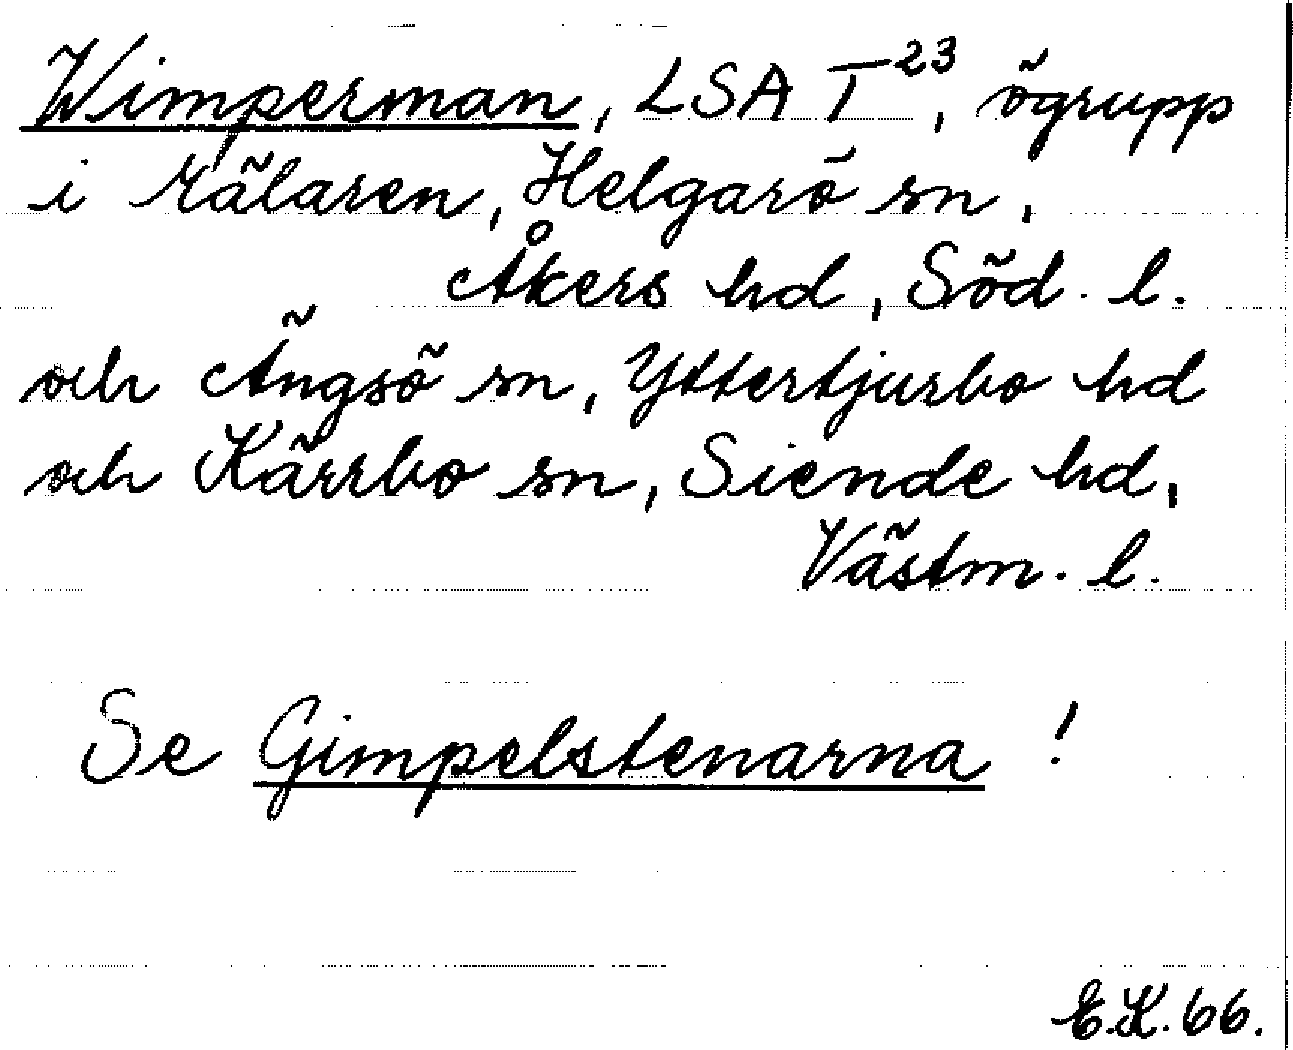 Wimperman, LSA T²³, ögrupp
i Mälaren, Helgarö sn,
Åkers hd, Söd. l.
och Ängsö sn, Yttertjurbo hd
och Kärrbo sn, Siende hd,
Västm. l.
Se Gimpelstenarna !
E.K. 66.